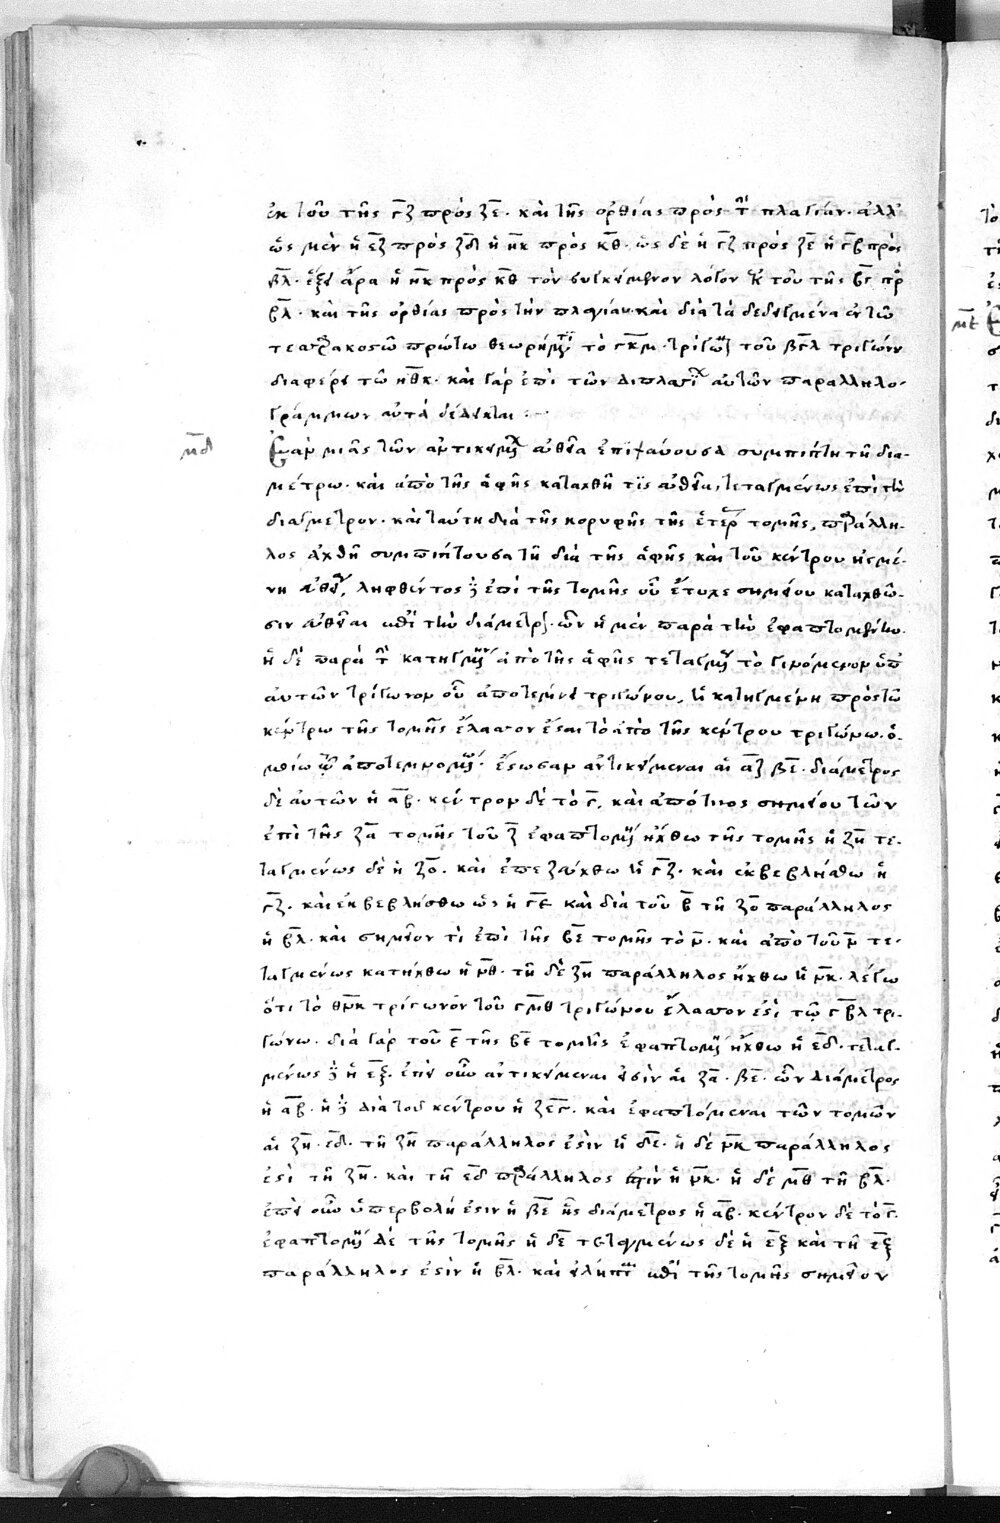 ἐκ τοῦ τῆς ΓΖ πρὸς ΖΕ· καὶ τῆς ὀρθίας πρὸς τ πλαγίαν· ἀλλ'
ὡς μὲν ἡ ΕΖ πρὸς ΖΔ ἡ ΗΚ πρὸς ΚΘ· ὡς δὲ ἡ ΓΖ πρὸς ΖΕ ἡ ΓΒ πρὸς
ΒΛ· ἕξει ἄρα ἡ ΗΚ πρὸς ΚΘ τὸν συγκείμενον λόγον ἐκ τοῦ τῆς ΒΓ πρ
ΒΛ· καὶ τῆς ὀρθίας πρὸς τὴν πλαγίαν· καὶ διὰ τὰ δεδειγμένα ἐν τῶ
τεσσαρακοστῶ πρώτω θεωρήματι τὸ ΓΚΜ τρίγων τοῦ ΒΓΛ τριγώνου
διαφέρει τῶ ΗΘΚ· καὶ γὰρ ἐπὶ τῶν διπλασί αὐτῶν παραλληλο-
γράμμων αὐτὰ δέδεικται :~
μδ Ἐὰν μιᾶς τῶν ἀντικειμ εὐθεῖα ἐπιψαύουσα συμπίπτη τῆ δια-
μέτρω· καὶ ἀπὸ τῆς ἁφῆς καταχθῆ τις εὐθεῖα τεταγμένως ἐπὶ τὴν
διάμετρον· καὶ ταύτη διὰ τῆς κορυφῆς τῆς ἑτέρ τομῆς, παράλλη-
λος ἀχθῆ συμπίπτουσα τῆ διὰ τῆς ἁφῆς καὶ τοῦ κέντρου ἠγμέ-
νη εὐθεί, ληφθέντος δὲ ἐπὶ τῆς τομῆς οὗ ἔτυχε σημείου καταχθῶ-
σιν εὐθεῖαι ἐπὶ τὴν διάμετρ· ὧν ἡ μὲν παρὰ τὴν ἐφαπτομένην·
ἡ δὲ παρὰ τ κατηγμέν ἀπὸ τῆς ἁφῆς τεταγμ τὸ γινόμενον ὑπ
αὐτῶν τρίγωνον οὗ ἀποτέμνει τριγώνου, ἡ κατηγμένη πρὸς τῶ
κέντρω τῆς τομῆς ἔλασσον ἔσται τὸ ἀπὸ τῆς κέντρου τριγώνω· ὁ-
μοίω τῶ ἀποτεμνομέν· ἔστωσαν ἀντικείμεναι αἱ ΑΖ ΒΕ· διάμετρος
δὲ αὐτῶν ἡ ΑΒ· κέντρον δὲ τὸ Γ, καὶ ἀπό τινος σημείου τῶν
ἐπὶ τῆς ΖΑ τομῆς τοῦ Ζ ἐφαπτομ ἤχθω τῆς τομῆς ἡ ΖΗ τε-
ταγμένως δὲ ἡ ΖΟ· καὶ ἐπεζεύχθω ἡ ΓΖ· καὶ ἐκβεβλήσθω ἡ
ΓΖ· καὶ ἐκβεβλήσθω ὡς ἡ ΓΕ καὶ διὰ τοῦ Β τῆ ΖΟ παράλληλος
ἡ ΒΛ· καὶ σημεῖόν τι ἐπὶ τῆς ΒΕ τομῆς τὸ Μ· καὶ ἀπὸ τοῦ Μ τε-
ταγμένως κατήχθω ἡ ΜΘ· τῆ δὲ ΖΗ παράλληλος ἤχθω ἡ ΜΚ· λέγω
ὅτι τὸ ΘΜΚ τρίγωνον τοῦ ΓΜΘ τριγώνου ἔλασσόν ἐστὶ τῶ ΓΒΛ τρι-
γώνω· διὰ γὰρ τοῦ Ε τῆς ΒΕ τομῆς ἐφαπτομ ἤχθω ἡ ΕΔ· τεταγ-
μένως δὲ ἡ ΕΞ· ἐπεὶ οὖν ἀντικείμεναι εἰσὶν αἱ ΖΑ· ΒΕ· ὧν διάμετρος
ἡ ΑΒ· ἡ δὲ διὰ τοῦ κέντρου ἡ ΖΕΓ· καὶ ἐφαπτόμεναι τῶν τομῶν
αἱ ΖΗ· ΕΔ· τῆ ΖΗ παράλληλος ἐστὶν ἡ ΔΕ· ἡ δὲ ΜΚ παράλληλος
ἐστὶ τῆ ΖΗ· καὶ τῆ ΕΔ παράλληλος ἐστὶν ἡ ΜΚ· ἡ δὲ ΜΘ τῆ ΒΛ·
ἐπεὶ οὖν ὑπερβολή ἐστιν ἡ ΒΕ ἧς διάμετρος ἡ ΑΒ· κέντρον δὲ τὸ Γ·
ἐφαπτομ δὲ τῆς τομῆς ἡ ΔΕ τεταγμένως δὲ ἡ ΕΞ καὶ τῆ ΕΞ
παράλληλος ἐστὶν ἡ ΒΛ· καὶ εἴληπτ ἐπὶ τῆς τομῆς σημεῖον